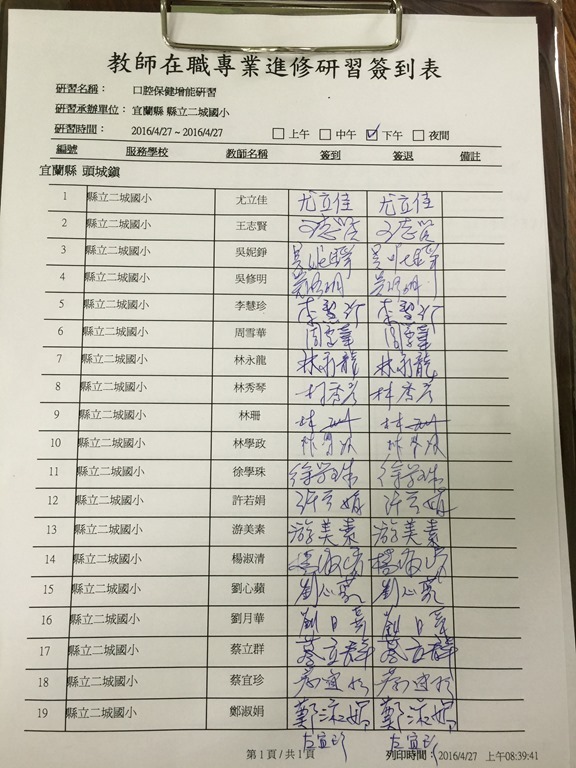 教師在職專業進修研習簽到表
研習名稱： 口腔保健增能研習
研習承辦單位： 宜蘭縣 縣立二城國小
研習時間： 2016/4/27 ~ 2016/4/27 □上午 □中午 ☑下午 □夜間
編號 服務學校 教師名稱 簽到 簽退 備註
宜蘭縣 頭城鎮
1 縣立二城國小 尤立佳 尤立佳 尤立佳
2 縣立二城國小 王志賢 王志賢 王志賢
3 縣立二城國小 吳妮錚 吳妮錚 吳妮錚
4 縣立二城國小 吳修明 吳修明 吳修明
5 縣立二城國小 李慧珍 李慧珍 李慧珍
6 縣立二城國小 周雪華 周雪華 周雪華
7 縣立二城國小 林永龍 林永龍 林永龍
8 縣立二城國小 林秀琴 林秀琴 林秀琴
9 縣立二城國小 林珊 林珊 林珊
10 縣立二城國小 林學政 林學政 林學政
11 縣立二城國小 徐學珠 徐學珠 徐學珠
12 縣立二城國小 許若娟 許若娟 許若娟
13 縣立二城國小 游美素 游美素 游美素
14 縣立二城國小 楊淑清 楊淑清 楊淑清
15 縣立二城國小 劉心蘋 劉心蘋 劉心蘋
16 縣立二城國小 劉月華 劉月華 劉月華
17 縣立二城國小 蔡立群 蔡立群 蔡立群
18 縣立二城國小 蔡宜珍 蔡宜珍 蔡宜珍
19 縣立二城國小 鄭淑娟 鄭淑娟 鄭淑娟
宜珍 宜珍
第 1 頁 / 共 1 頁 列印時間：2016/4/27 上午08:39:41